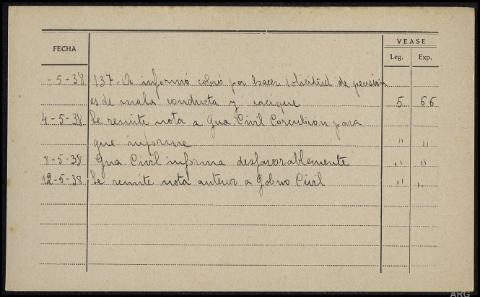 VEASE
FECHA Leg. Exp.
-5-38 137- informó cobró por hacer solicitud de pensión
es de mala conducta y cacique 5 66
4-5-38 Se remite nota a Gua Civil para
que informe " "
8-5-38 Gua Civil informa desfavorablemente " "
12-5-38 Se remite nota anterior a Gobno Civil " "
ARG